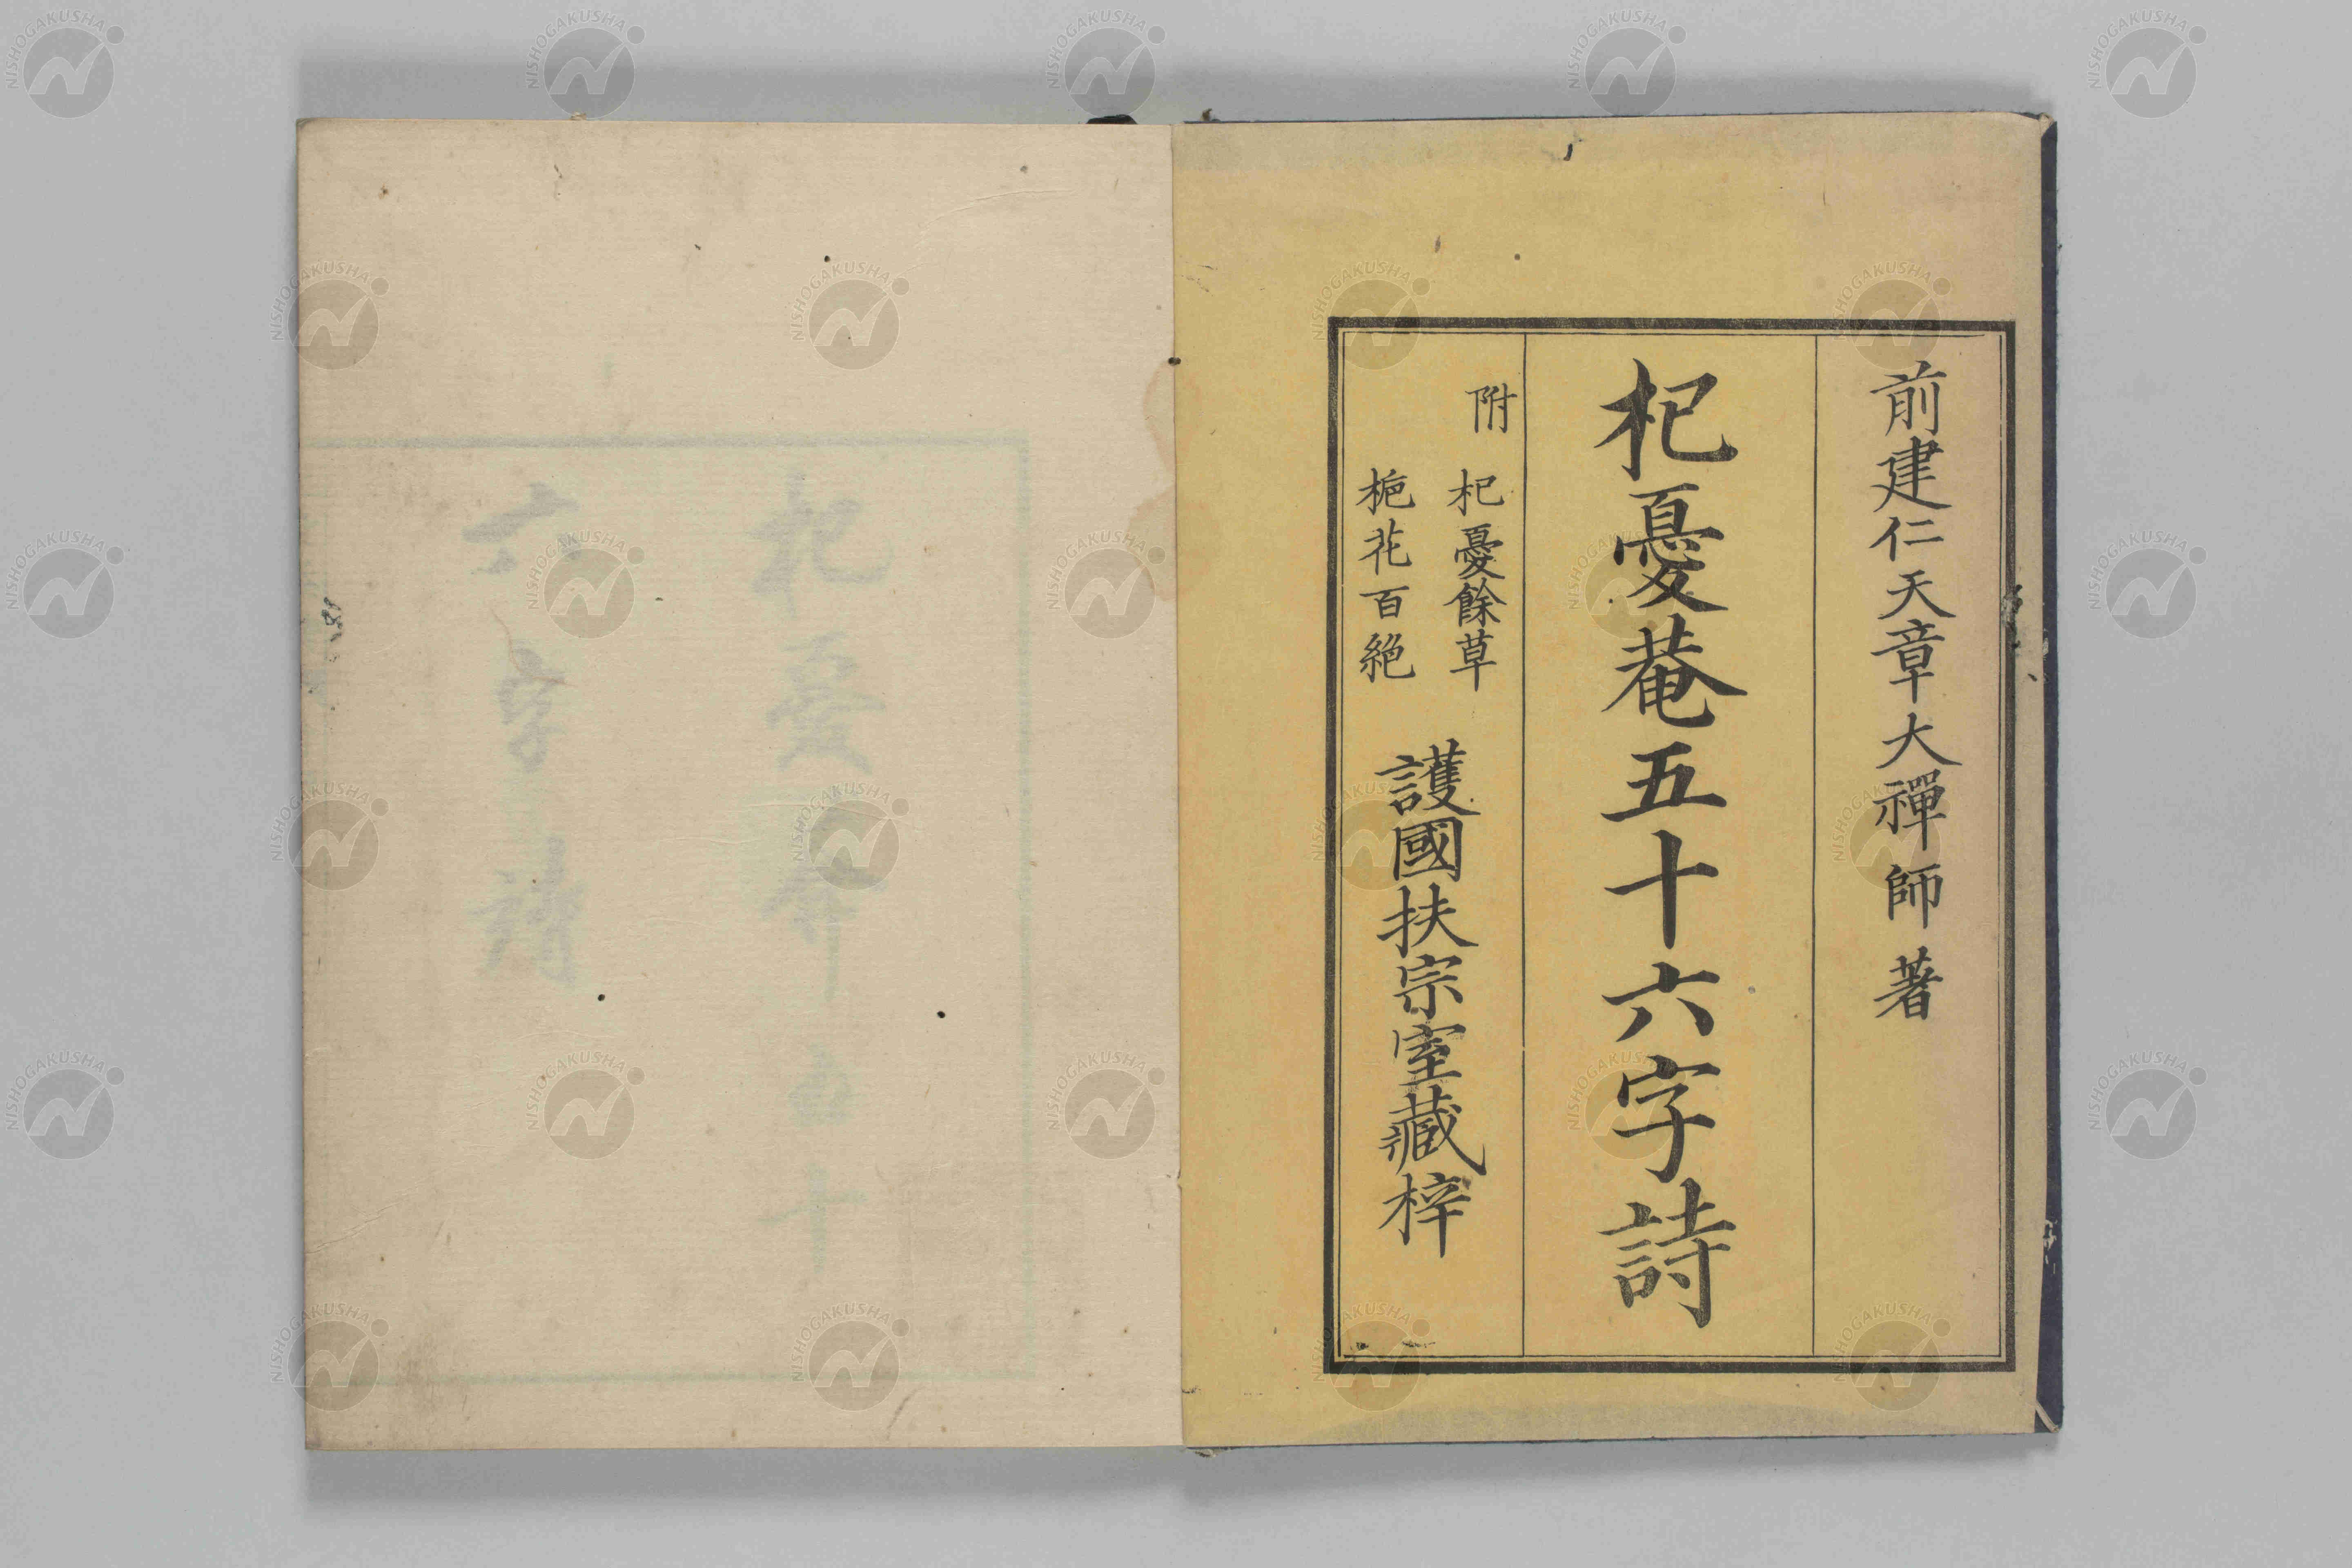 前建仁天章大禪師著
杞憂菴五十六字詩
附
杞憂餘草
梔花百絶
護國扶宗室藏梓
NISHOGAKUSHA